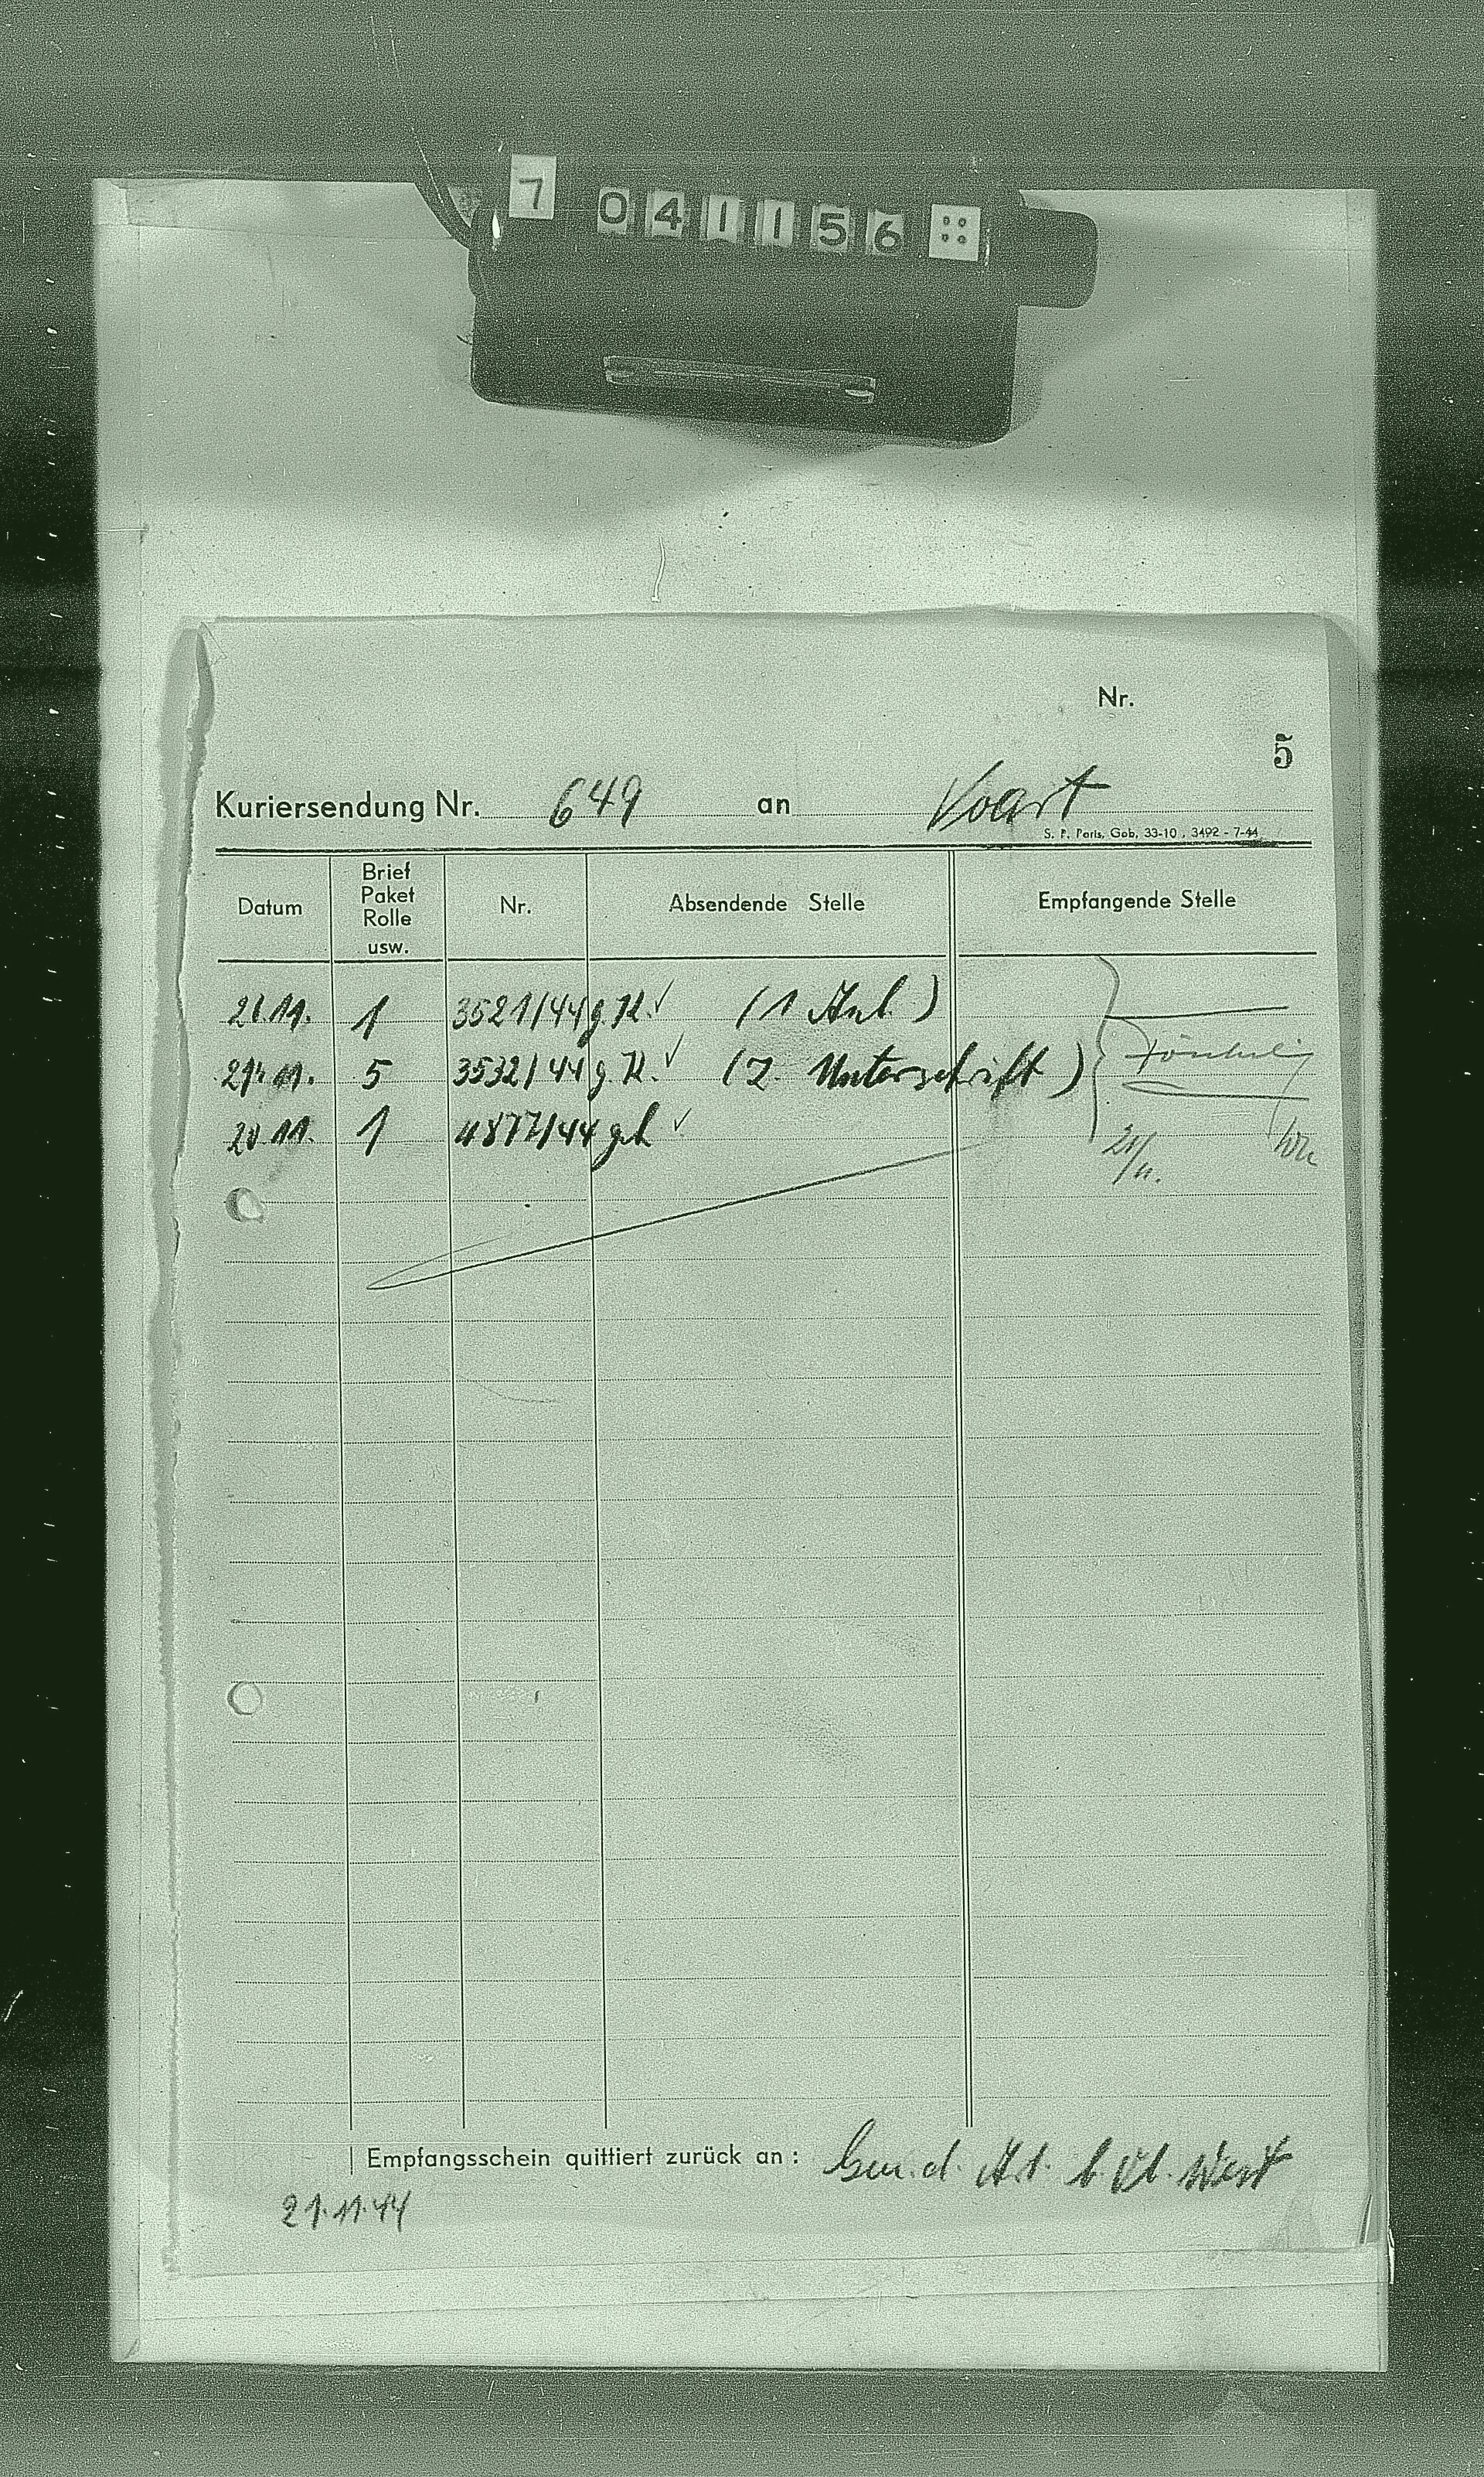 7 041156
Nr.
5
Kuriersendung Nr. 649 an Voart
S. P. Paris, Gob, 33-10 . 3492 - 7-44
Datum Brief Paket Rolle usw. Nr. Absendende Stelle Empfangende Stelle
21.11. 1 3521/44 g.K. ✓ (1 Anl.)
21.11. 5 3532/44 g.K. ✓ (2. Unterschrift)
20.11. 1 4877/44 geh ✓
21/11.
Empfangsschein quittiert zurück an: Gen. d. Art. b. Ob. West
21.11.44